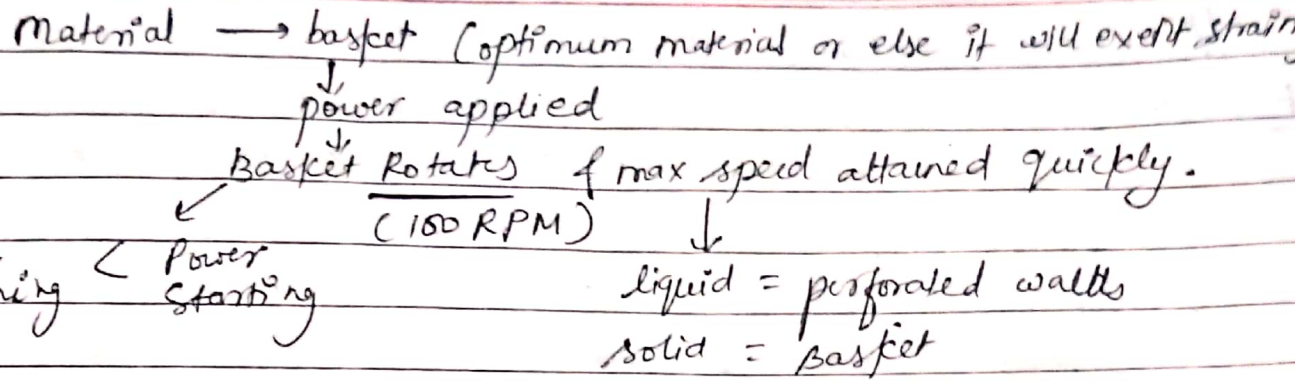 Material → basket (optimum material or else it will exert strain
↓
power applied
↓
Basket Rotates & max speed attained quickly.
↙ (150 RPM) ↓
< Power liquid = perforated walls
Starting
solid = Basket